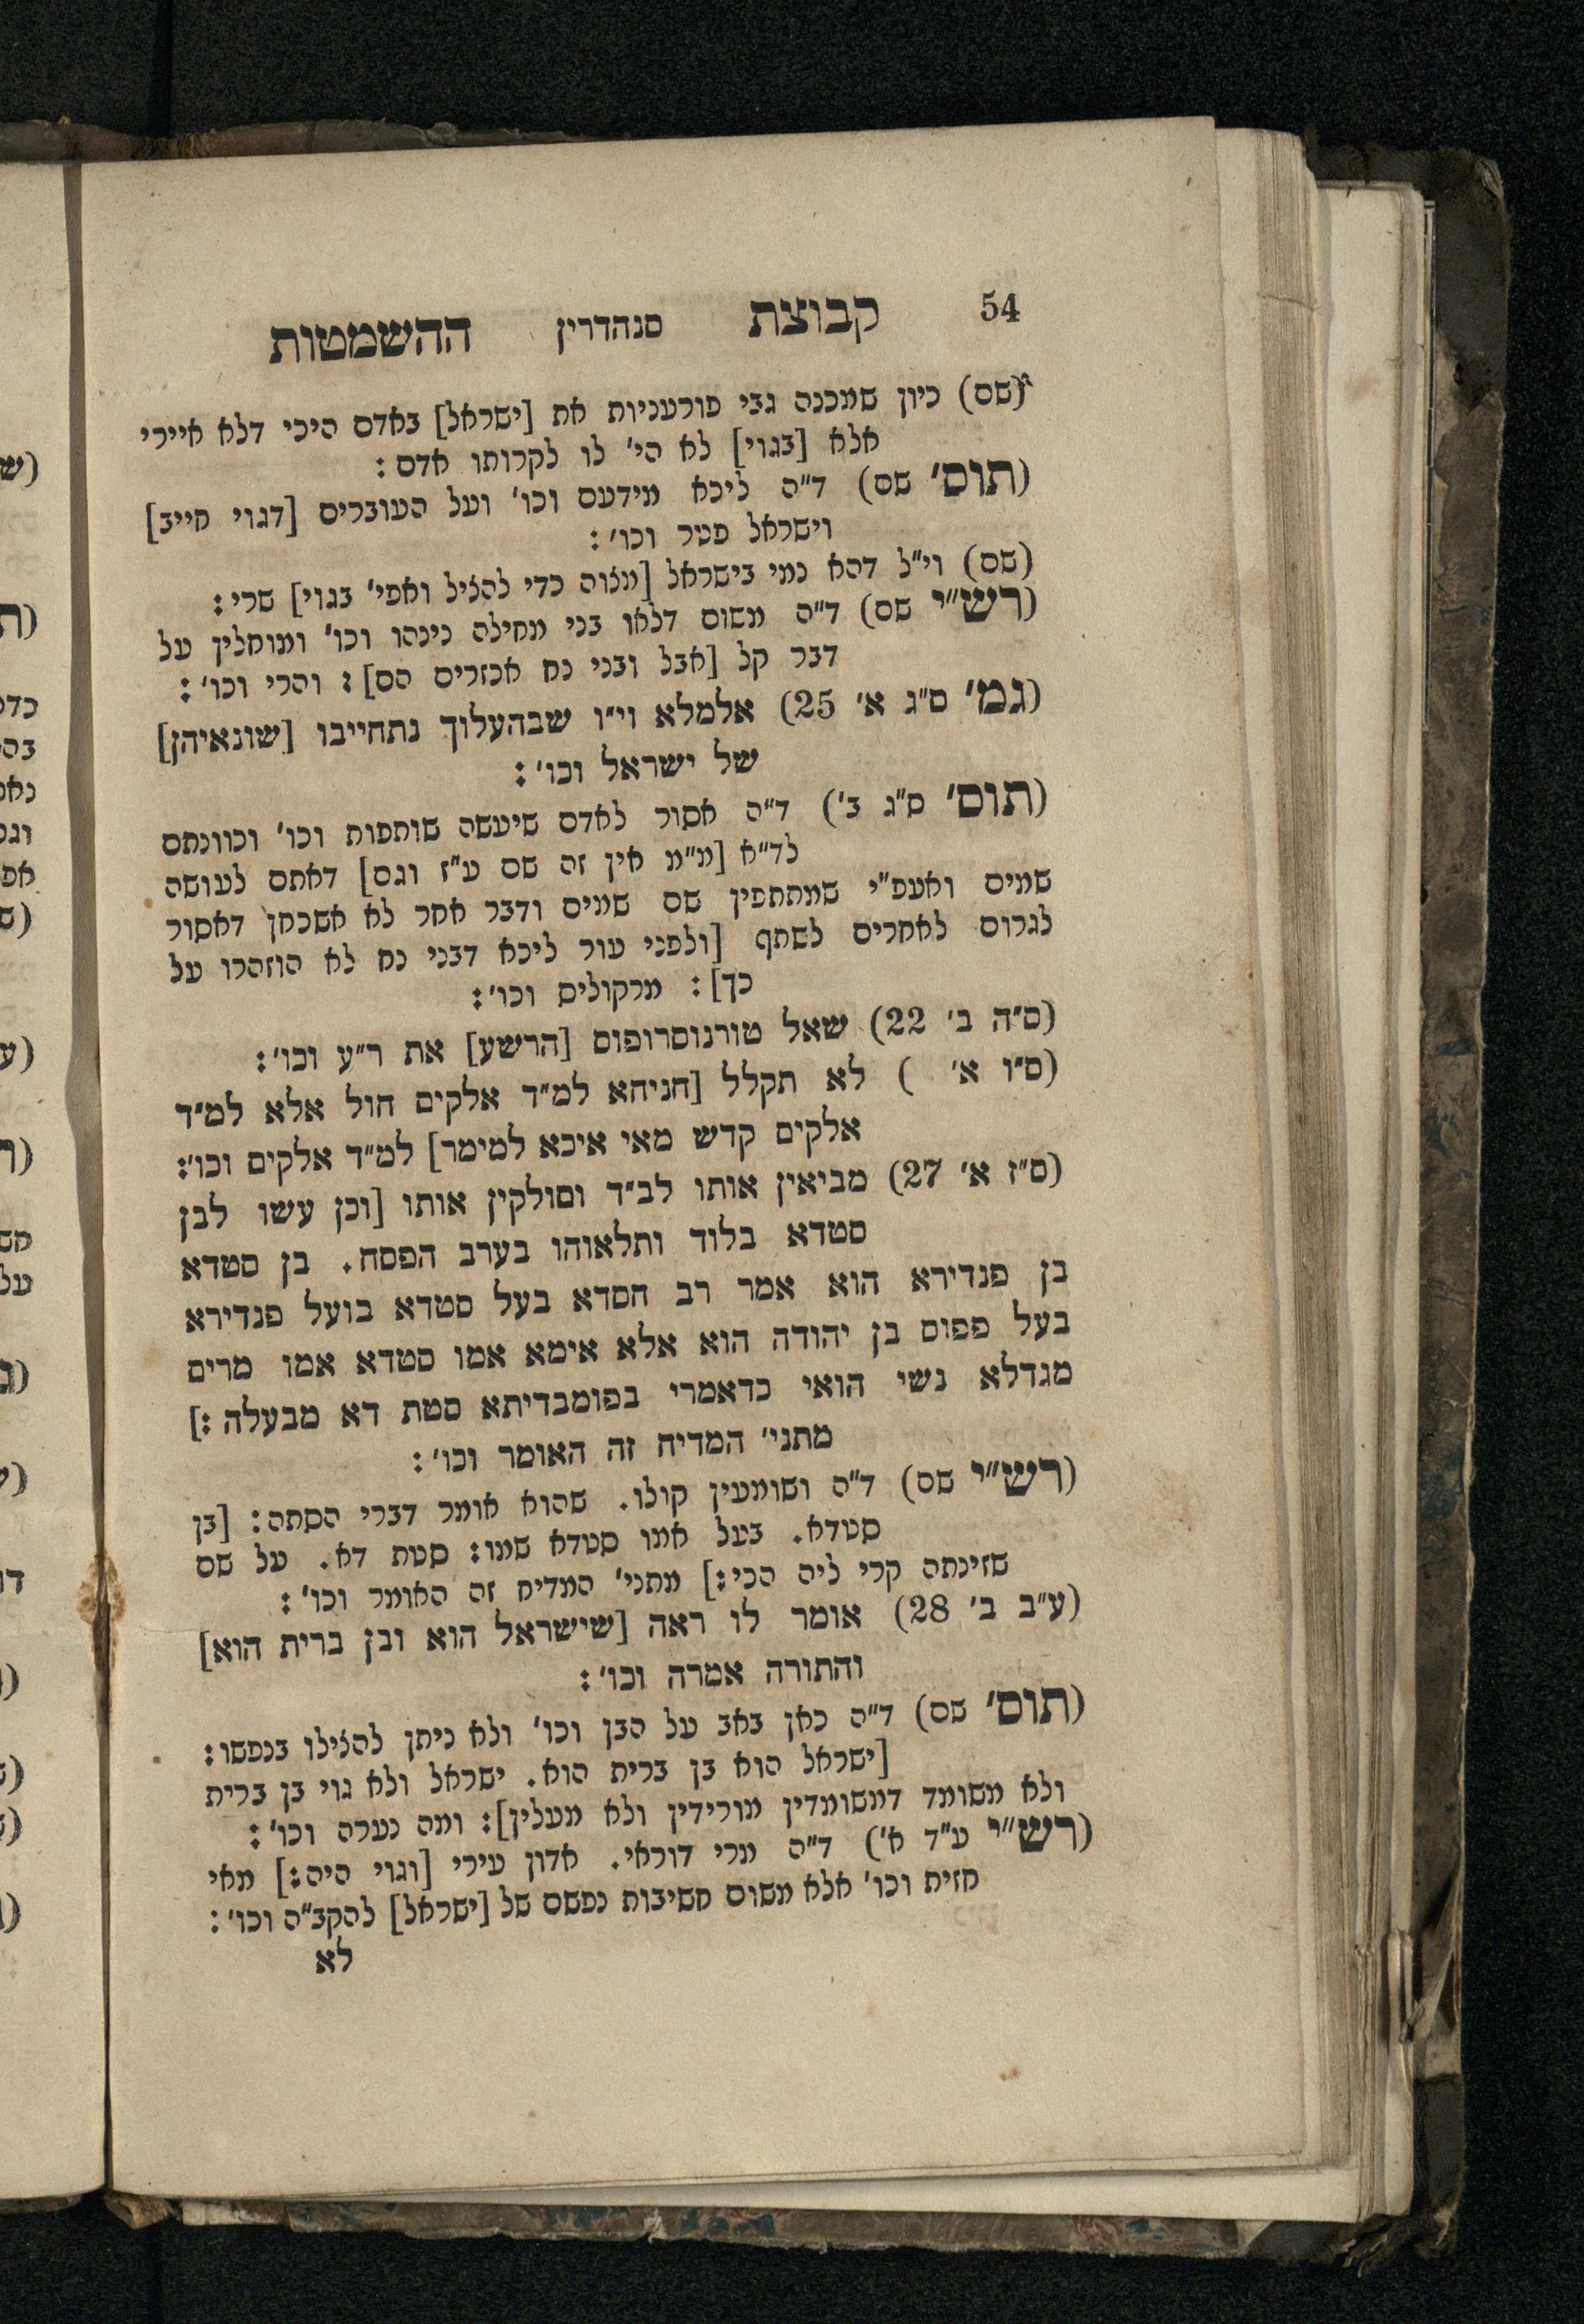 54 קבוצת סנהדרין ההשמטות
(שם) כיון שמכנה גבי פורעניות את [ישראל] באדם היכי דלא איירי
אלא [בגוי] לא הי' לו לקרותו אדם:
(תוס' שם) ד"ה ליכא מידעם וכו' ועל העוברים [דגוי חייב]
וישראל פטר וכו':
(שם) וי"ל דהא נמי בישראל [מצוה כדי להציל ואפי' בגוי] שרי:
(רש"י שם) ד"ה משום דלאו בני מחילה נינהו וכו' ומוחלין על
דבר קל [אבל ובני נח אכזרים הם]: והרי וכו':
(גמ' ס"ג א' 25) אלמלא וי"ו שבהעלוך נתחייבו [שונאיהן]
של ישראל וכו':
(תוס' ס"ג ב') ד"ה אסור לאדם שיעשה שותפות וכו' וכוונתם
לד"א [מ"מ אין זה שם ע"ז וגם] דאתם לעושה
שמים ואעפ"י שמתתפין שם שמים ודבר אחר לא אשכחן דאסור
לגרום לאחרים לשתף [ולפני עור ליכא דבני נח לא הוזהרו על
כך]: מרקוליס וכו':
(ס"ה ב' 22) שאל טורנוסרופוס [הרשע] את ר"ע וכו':
(ס"ו א' ) לא תקלל [הניחא למ"ד אלקים חול אלא למ"ד
אלקים קדש מאי איכא למימר] למ"ד אלקים וכו':
(ס"ז א' 27) מביאין אותו לב"ד וסולקין אותו [וכן עשו לבן
סטדא בלוד ותלאוהו בערב הפסח. בן סטדא
בן פנדירא הוא אמר רב חסדא בעל סטדא בועל פנדירא
בעל פפוס בן יהודה הוא אלא אימא אמו סטדא אמו מרים
מגדלא נשי הואי כדאמרי בפומבדיתא סטת דא מבעלה:]
מתני' המדיח זה האומר וכו':
(רש"י שם) ד"ה ושומעין קולו. שהוא אומר דברי הסתה: [בן
סטדא. בעל אמו סטדא שמו: סטת דא. על שם
שזינתה קרי ליה הכי:] מתני' המדיח זה האומר וכו':
(ע"ב ב' 28) אומר לו ראה [שישראל הוא ובן ברית הוא]
והתורה אמרה וכו':
(תוס' שם) ד"ה כאן באב על הבן וכו' ולא ניתן להצילו בנפשו:
[ישראל הוא בן ברית הוא. ישראל ולא גוי בן ברית
ולא משומד דמשומדין מורידין ולא מעלין]: ומה נערה וכו':
(רש"י ע"ד א') ד"ה מרי דוראי. אדון עירי [וגוי היה:] מאי
חזית וכו' אלא משום חשיבות נפשם של [ישראל] להקב"ה וכו':
לא